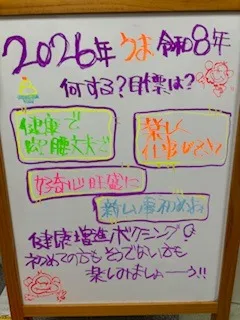 2026年 うま 令和8年
何する？目標は？
健康で
足腰丈夫で
楽しく
仕事
好奇心旺盛に
新しい事初めよう
健康増進ボクミング♪
初めての方もそうでない方も
楽しみましょーう!!